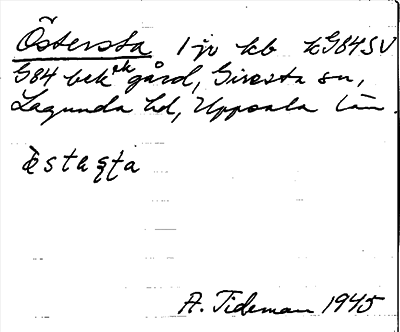 Östersta 1 jr kb kG84SV
G84 bek rk gård, Giresta sn,
Lagunda hd, Uppsala län.
östaşta
A. Tideman 1945